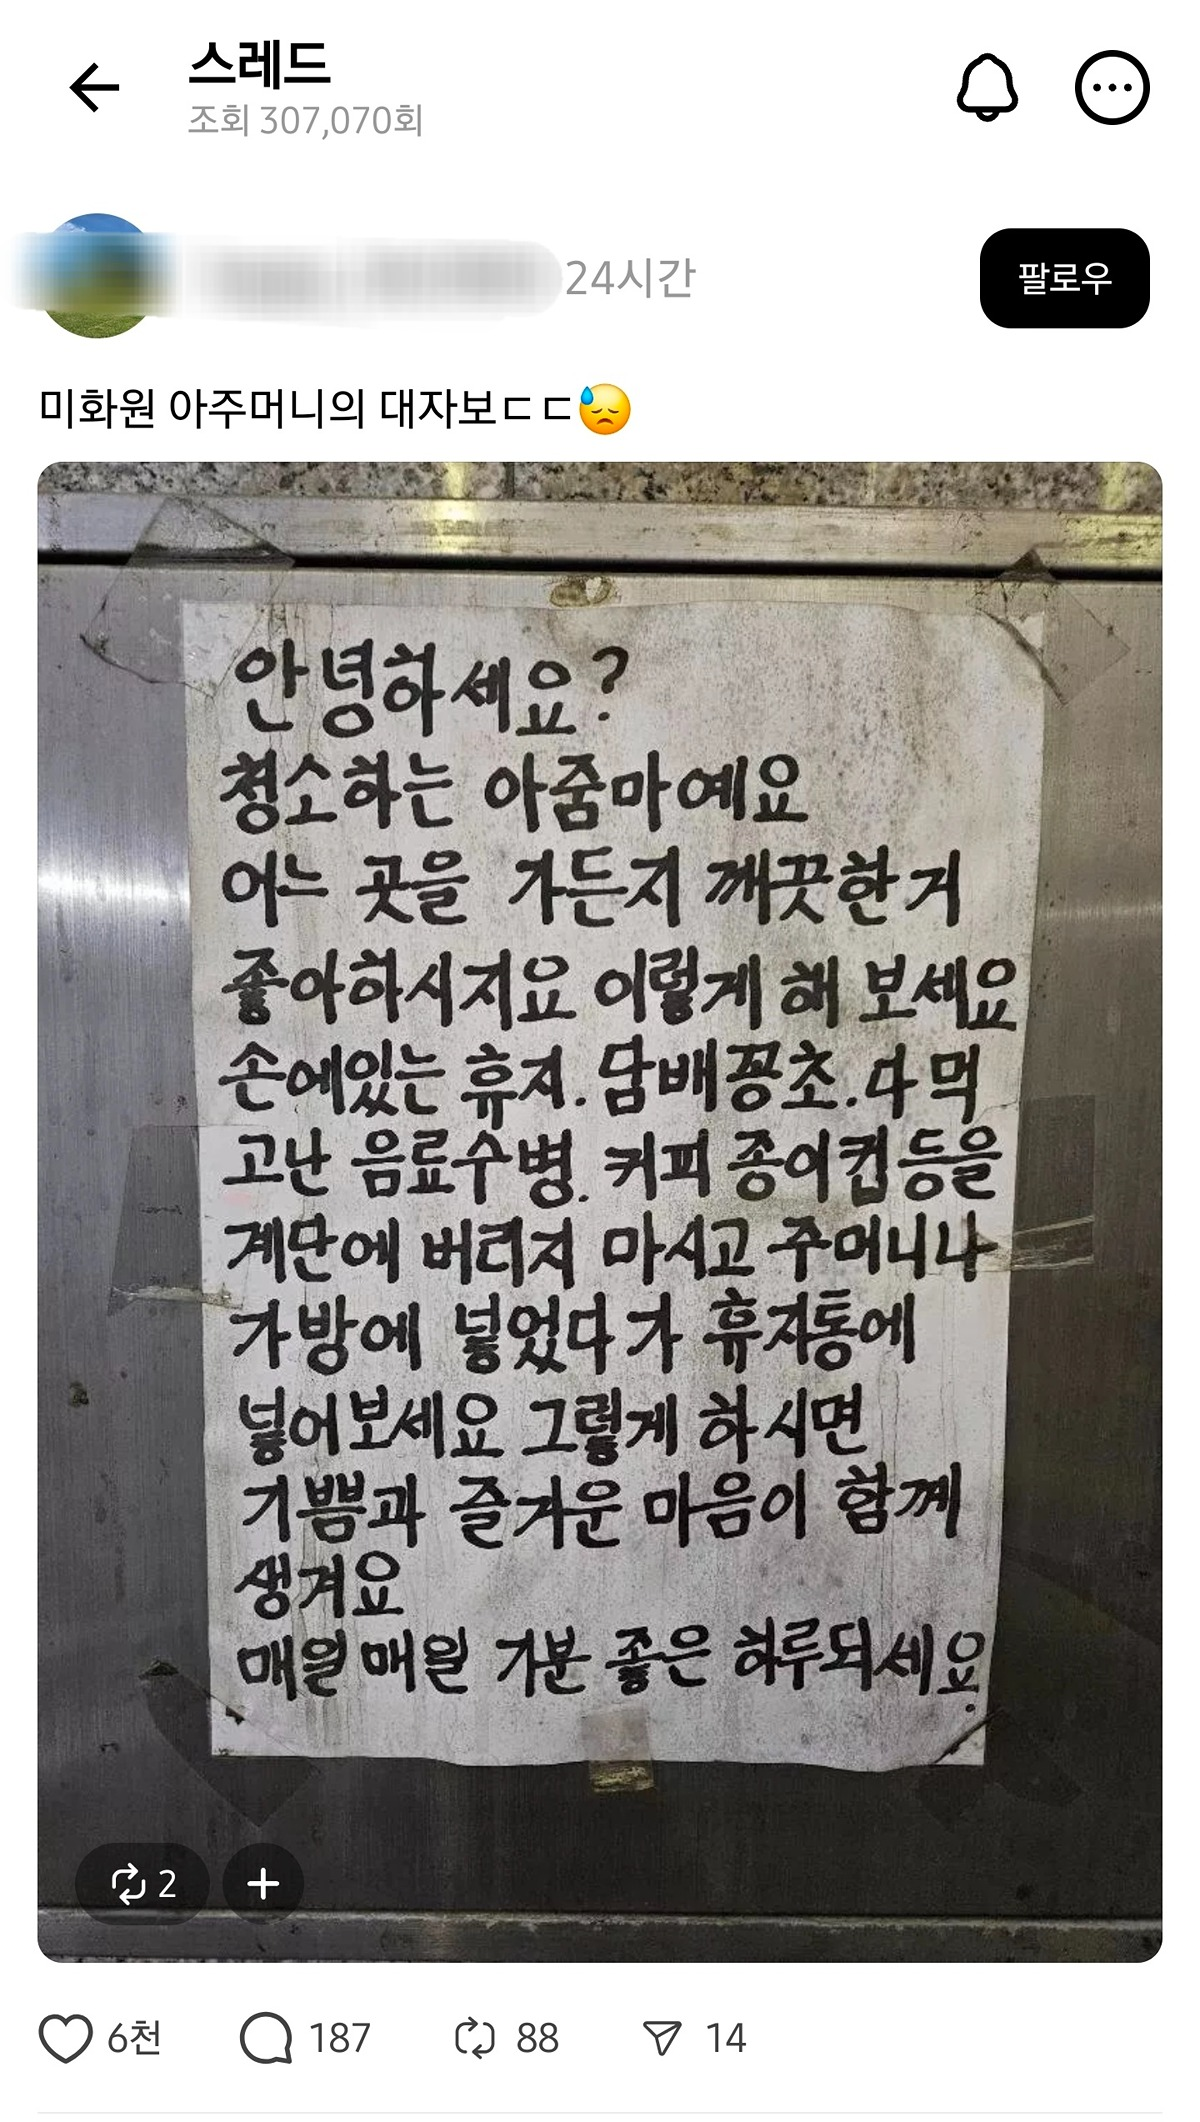 스레드
조회 307,070회
24시간
팔로우
미화원 아주머니의 대자보ㄷㄷ😓
안녕하세요?
청소하는 아줌마예요
어느 곳을 가든지 깨끗한거
좋아하시지요 이렇게 해 보세요
손에있는 휴지. 담배꽁초.다 먹
고난 음료수병. 커피 종이컵등을
계단에 버리지 마시고 주머니나
가방에 넣었다가 휴지통에
넣어보세요 그렇게 하시면
기쁨과 즐거운 마음이 함께
생겨요
매일매일 기분 좋은 하루되세요.
2
6천 187 88 14